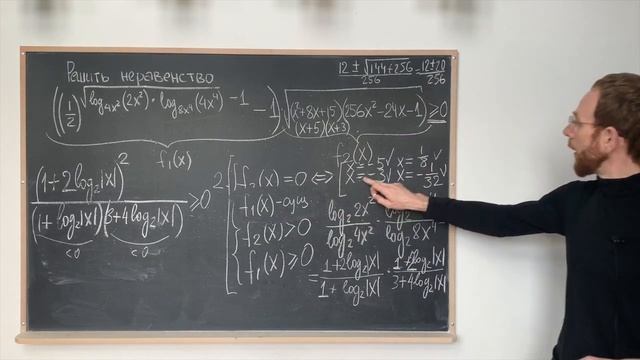 Решить неравенство
12 ± √(144+256) / 256 = 12±20 / 256
((1/2)^(√(log_{4x²}(2x²) · log_{8x⁴}(4x⁴)) - 1) - 1) √((x²+8x+15)(256x²-24x-1)) ≥ 0
(x+5)(x+3)
f₁(x)
f₂(x)
(1+2log₂|x|)² / (1+log₂|x|)(3+4log₂|x|) ≥ 0
<0 <0
2.
f₂(x)=0 ⇔ x=-5 ✓ x=1/8 ✓
x=-3 ✓ x=-1/32 ✓
f₁(x)-сущ
f₂(x)>0
f₁(x)≥0
log₂2x² / log₂4x² log₂ / log₂8x⁴
= 1+2log₂|x| / 1+log₂|x| · 1+2log₂|x| / 3+4log₂|x|